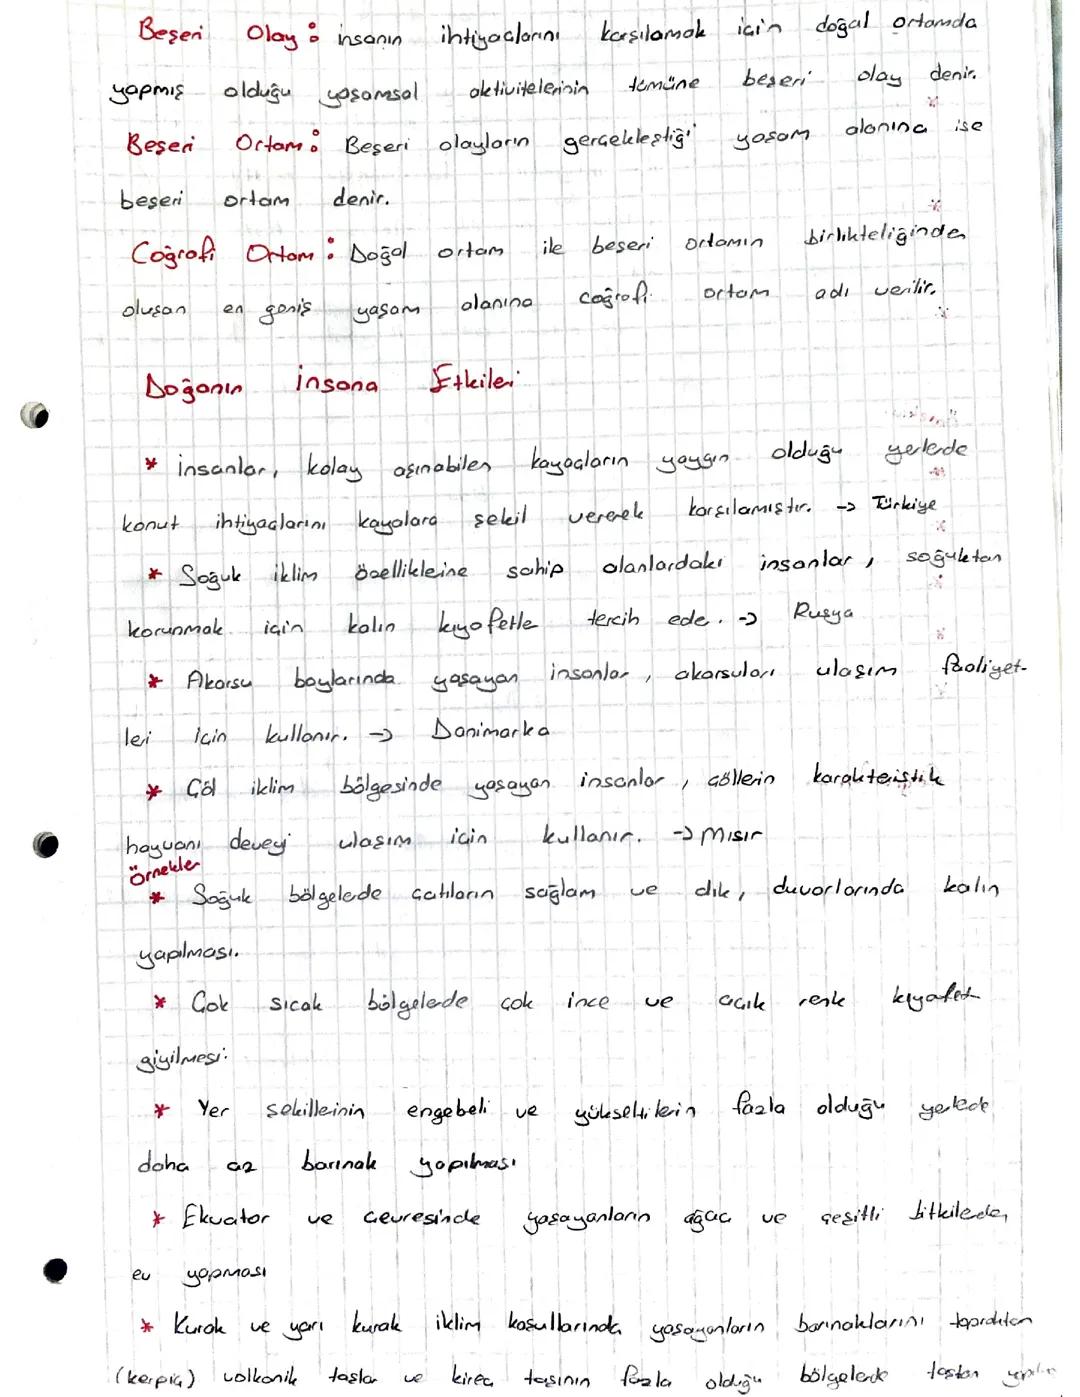 Beşeri Olay: insanın ihtiyaclarını karşılamak için doğal ortamda
yapmış olduğu yaşamsal aktivitelerinin tümüne beşeri olay denir.
Beşeri Ortam: Beşeri olayların gerçekleştiği yaşam alanına ise
beşeri ortam denir.
Coğrafi Ortam: Doğal ortam ile beşeri ortamın birlikteliğinden
oluşan en geniş yaşam alanına coğrafi ortam adı verilir.
Doğanın insana Etkileri
* insanlar, kolay aşınabilen kayaçların yaygın olduğu yerlerde
konut ihtiyaçlarını kayalara şekil vererek karşılamıştır. -> Türkiye
* Soğuk iklim özelliklerine sahip alanlardaki insanlar, soğuktan
korunmak için kalın kıyafetle tercih ede. -> Rusya
* Akarsu boylarında yaşayan insanlar, akarsuları ulaşım faaliyet-
leri için kullanır. -> Danimarka
* Çöl iklim bölgesinde yaşayan insanlar, çöllerin karakteristik
hayvanı deveyi ulaşım için kullanır. -> Mısır
Örnekler
* Soğuk bölgelerde çatıların sağlam ve dik, duvarlarında kalın
yapılması.
* Çok sıcak bölgelerde çok ince ve açık renk kıyafet
giyilmesi.
* Yer şekillerinin engebeli ve yükseltilerin fazla olduğu yerlerde
daha az barınak yapılması
* Ekvator ve çevresinde yaşayanların ağaç ve çeşitli bitkilerden
ev yapması
* Kurak ve yarı kurak iklim koşullarında yaşayanların barınaklarını topraktan
(kerpiç) volkanik taşlar ve kireç taşının fazla olduğu bölgelerde taştan